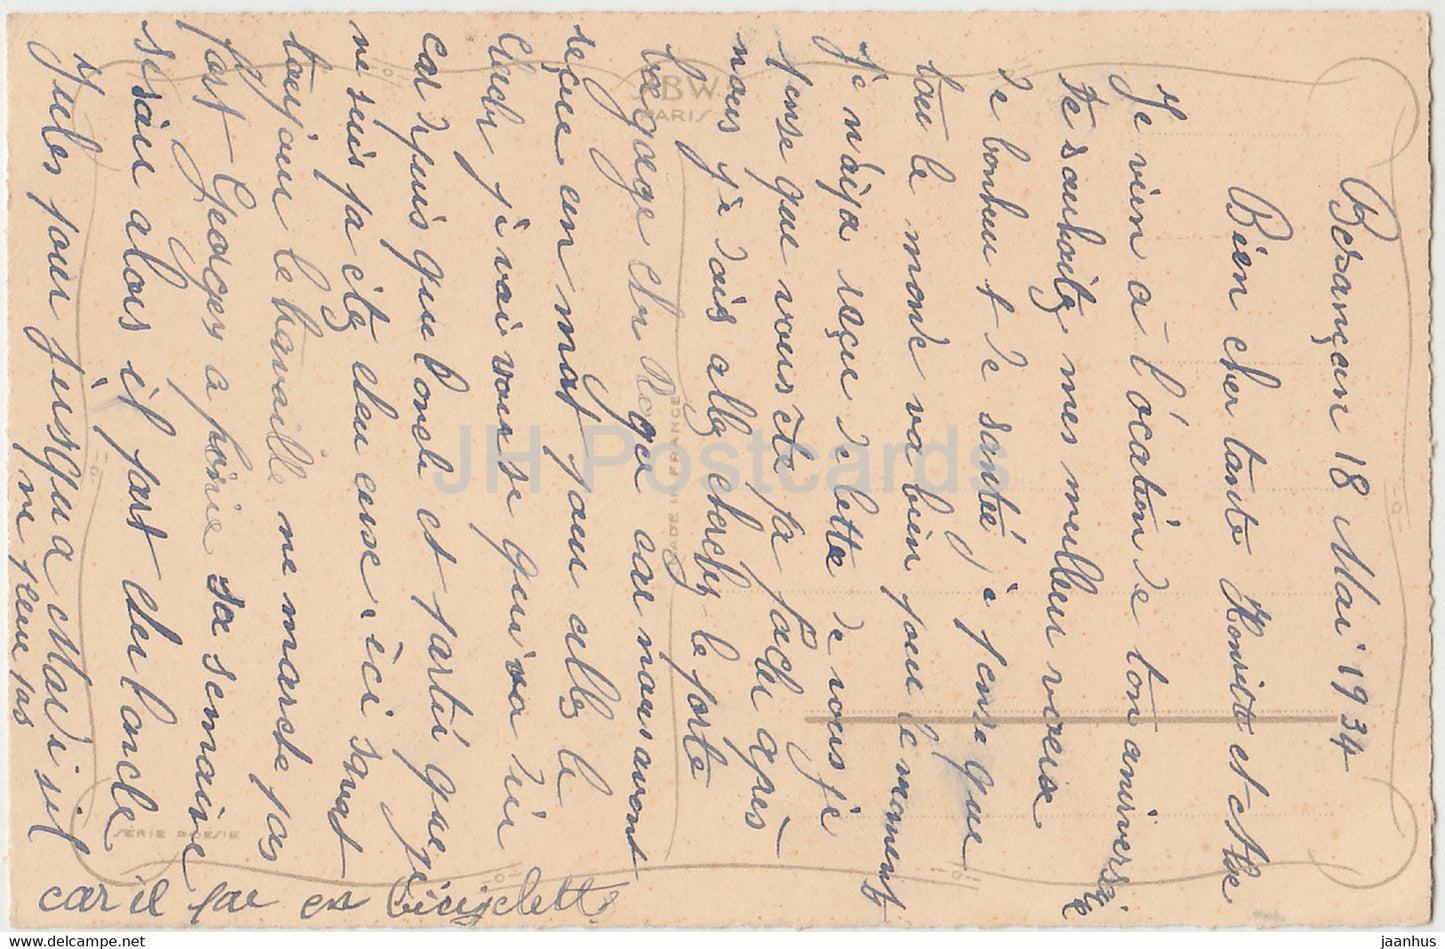 Besançon 18 Mai 1934
Bien cher tante Henriette et
Je vien a l'ocation de ton aniversaie
Je te souhaite mes meilleur vœux
de bonheur et de santé je pense que
tou le monde va bien pour le moment
je n'aiya reçu de lette de vous je
pense que vous ete pa fachi apres
nous je dois alle cherchy le porte
bagage cher Roga car nous avont
reçue un mot pour alle le
cherchy je vai voir se qui va dir
car depuis que l'oncle et parti que je
ne suis pa ete cheu euse ici savat
toujour le travaille ne marche pas
fort Georges a finie sa semaine
serait alors il part cher l'oncle
Jules pour jusqu a Mardi s'il
ne pleu pas
car il par en biciclette
J.B.W.
PARIS
MADE IN FRANCE
SERIE POESIE
JH Postcards
www.delcampe.net
jaanhus